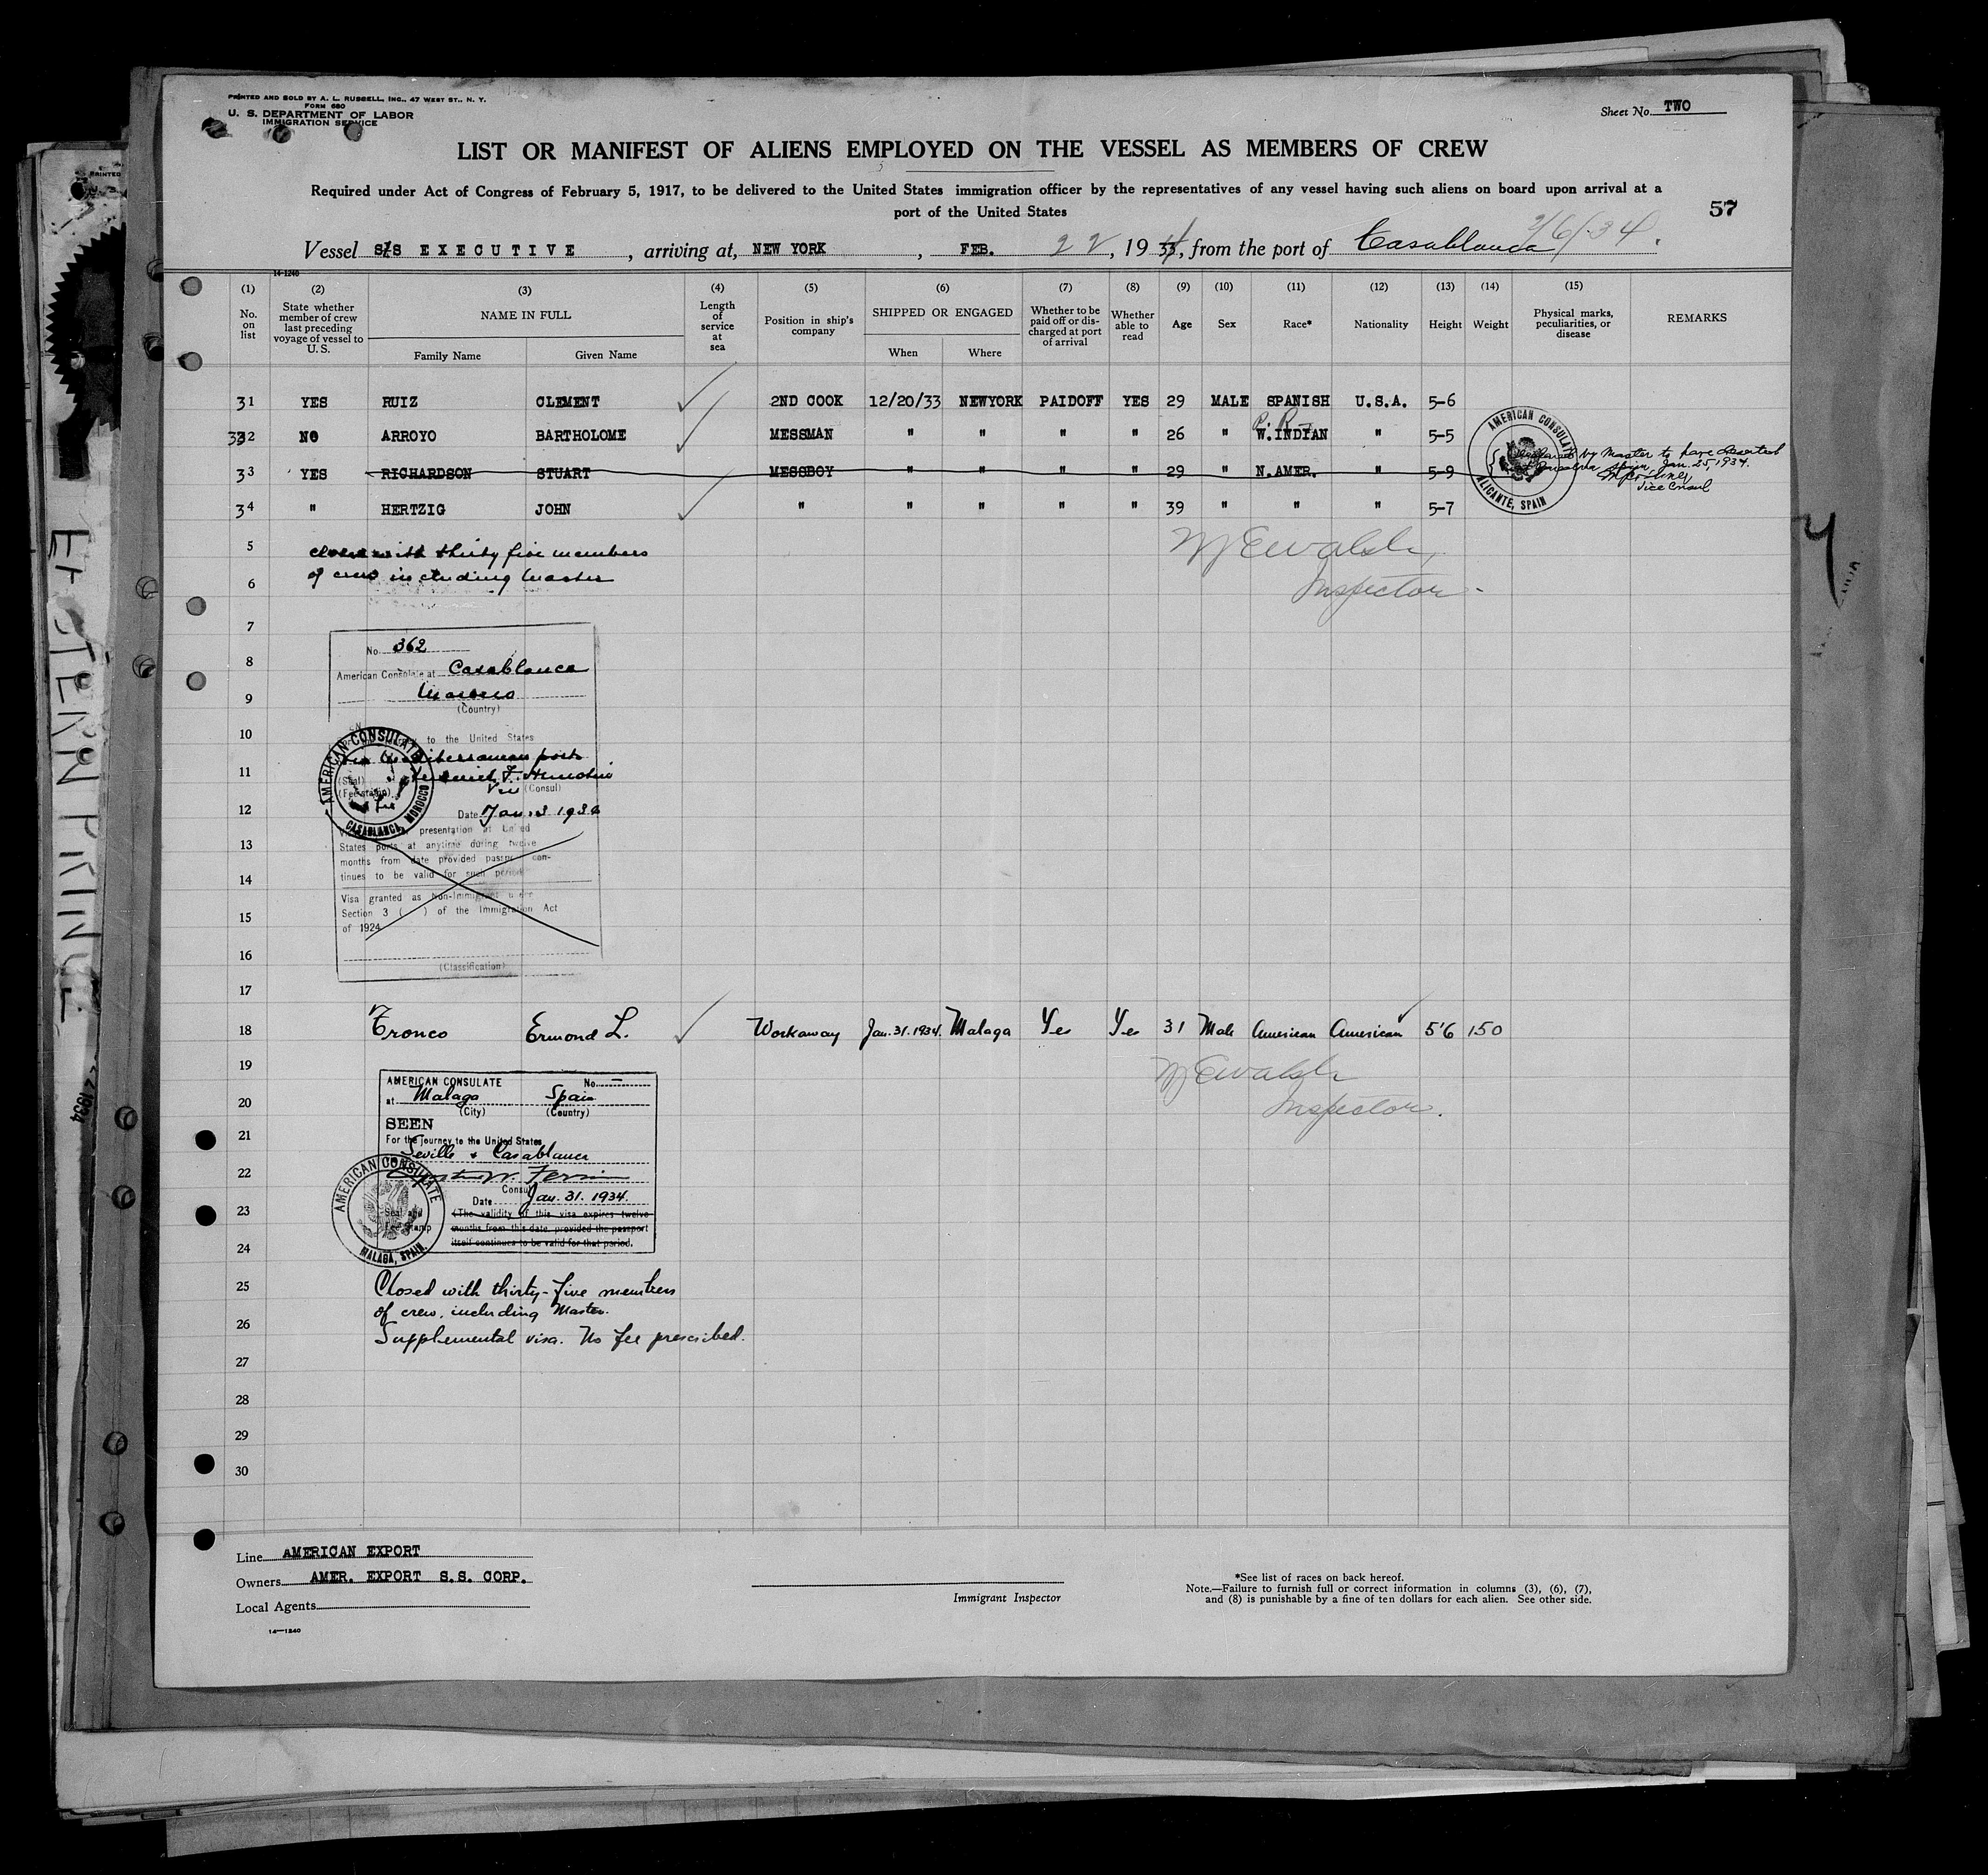 PRINTED AND SOLD BY A. L. RUSSELL, INC., 47 WEST ST., N. Y.
FORM 680
U. S. DEPARTMENT OF LABOR
IMMIGRATION SERVICE
Sheet No. TWO
LIST OR MANIFEST OF ALIENS EMPLOYED ON THE VESSEL AS MEMBERS OF CREW
Required under Act of Congress of February 5, 1917, to be delivered to the United States immigration officer by the representatives of any vessel having such aliens on board upon arrival at a
port of the United States
57
Vessel S/S EXECUTIVE, arriving at, NEW YORK, FEB. 22, 19 34, from the port of Casablanca 2/6/34.
14-1240
(1) (2) (3) (4) (5) (6) (7) (8) (9) (10) (11) (12) (13) (14) (15)
No. on list
State whether member of crew last preceding voyage of vessel to U. S.
NAME IN FULL
Family Name
Given Name
Length of service at sea
Position in ship's company
SHIPPED OR ENGAGED
When
Where
Whether to be paid off or discharged at port of arrival
Whether able to read
Age
Sex
Race*
Nationality
Height
Weight
Physical marks, peculiarities, or disease
REMARKS
31 YES RUIZ CLEMENT 2ND COOK 12/20/33 NEWYORK PAIDOFF YES 29 MALE SPANISH U.S.A. 5-6
32 NO ARROYO BARTHOLOME MESSMAN " " " " 26 " P. R. W.INDIAN " 5-5
33 YES RICHARDSON STUART MESSBOY " " " " 29 " N.AMER. " 5-9
by Master to have deserted
Spain, Jan. 25, 1934.
Vice Consul
AMERICAN CONSULATE
ALICANTE, SPAIN
34 " HERTZIG JOHN " " " " " 39 " " " 5-7
5 closed with thirty five members
6 of crew including Master
W J Ewalsh
Inspector
7
No. 362
8 American Consulate at Casablanca
9 Morocco
(Country)
10 to the United States
via Mediterranean ports
11
(Seal)
(Fee stamp)
Vice (Consul)
AMERICAN CONSULATE
CASABLANCA, MOROCCO
12 Date Jan. 3 1934
13 presentation at United
States ports at anytime during twelve
months from date provided passport con-
14 tinues to be valid for such period
15 Visa granted as Non-Immigrant under
Section 3 ( ) of the Immigration Act
of 1924
16
(Classification)
17
18 Tronco Ermond L. Workaway Jan. 31. 1934. Malaga Yes Yes 31 Male American American 5'6 150
19
W J Ewalsh
Inspector.
AMERICAN CONSULATE No. —
20 at Malaga Spain
(City) (Country)
21 SEEN
For the journey to the United States
Seville & Casablanca
22
Consul
23 Date Jan. 31. 1934.
Seal and
Fee Stamp
(The validity of this visa expires twelve
months from this date, provided the passport
24 itself continues to be valid for that period.
AMERICAN CONSULATE
MALAGA, SPAIN
25 Closed with thirty-five members
of crew, including Master.
26 Supplemental visa. No fee prescribed.
27
28
29
30
Line AMERICAN EXPORT
Owners AMER. EXPORT S.S. CORP.
Local Agents
14—1240
Immigrant Inspector
*See list of races on back hereof.
Note.—Failure to furnish full or correct information in columns (3), (6), (7),
and (8) is punishable by a fine of ten dollars for each alien. See other side.
PRINTED
EASTERN PRINCE
1934